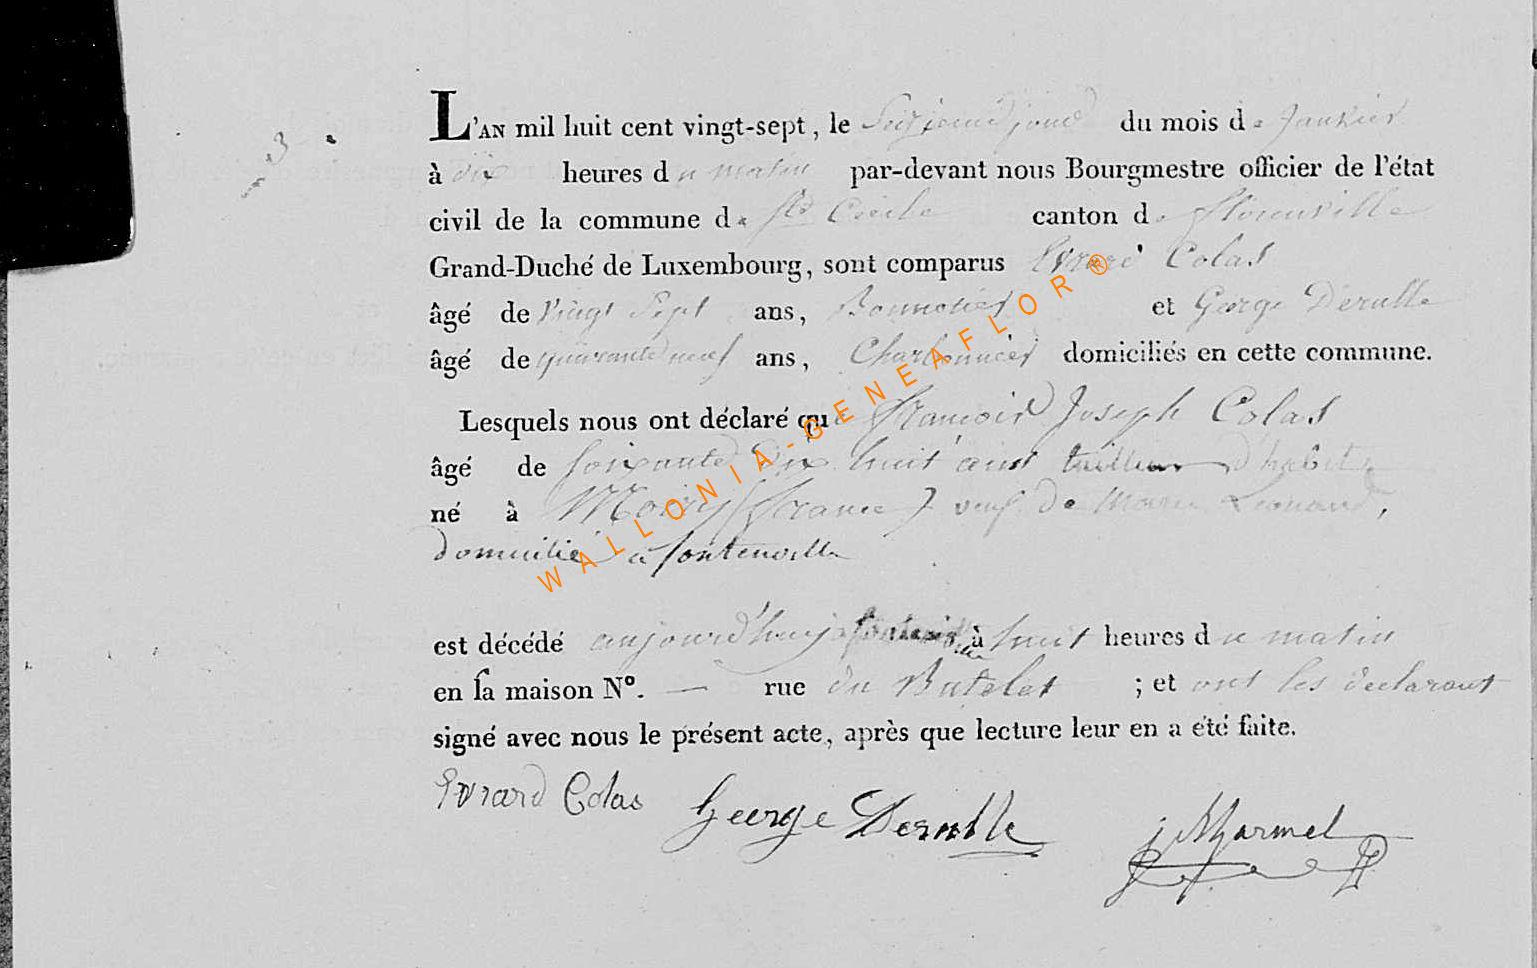 3
L'AN mil huit cent vingt-sept, le Seizieme jour du mois de Janvier
à dix heures du matin par-devant nous Bourgmestre officier de l'état
civil de la commune de Ste Cécile canton de florenville
Grand-Duché de Luxembourg, sont comparus Evrard Colas
âgé de Vingt Sept ans, Bonnetier et George Derulle
âgé de quarante neuf ans, Charbonnier domiciliés en cette commune.
Lesquels nous ont déclaré que francois Joseph Colas
âgé de soixante dix huit ans tailleur d'habit
né à Moiry (france) veuf de Marie Leonard,
domicilié a fontenoille
est décédé aujourd'huy a à huit heures du matin
en sa maison N°. — rue du Batelet ; et ont les declarant
signé avec nous le présent acte, après que lecture leur en a été faite.
Evrard Colas George Derulle
WALLONIA-GENEAFLOR®